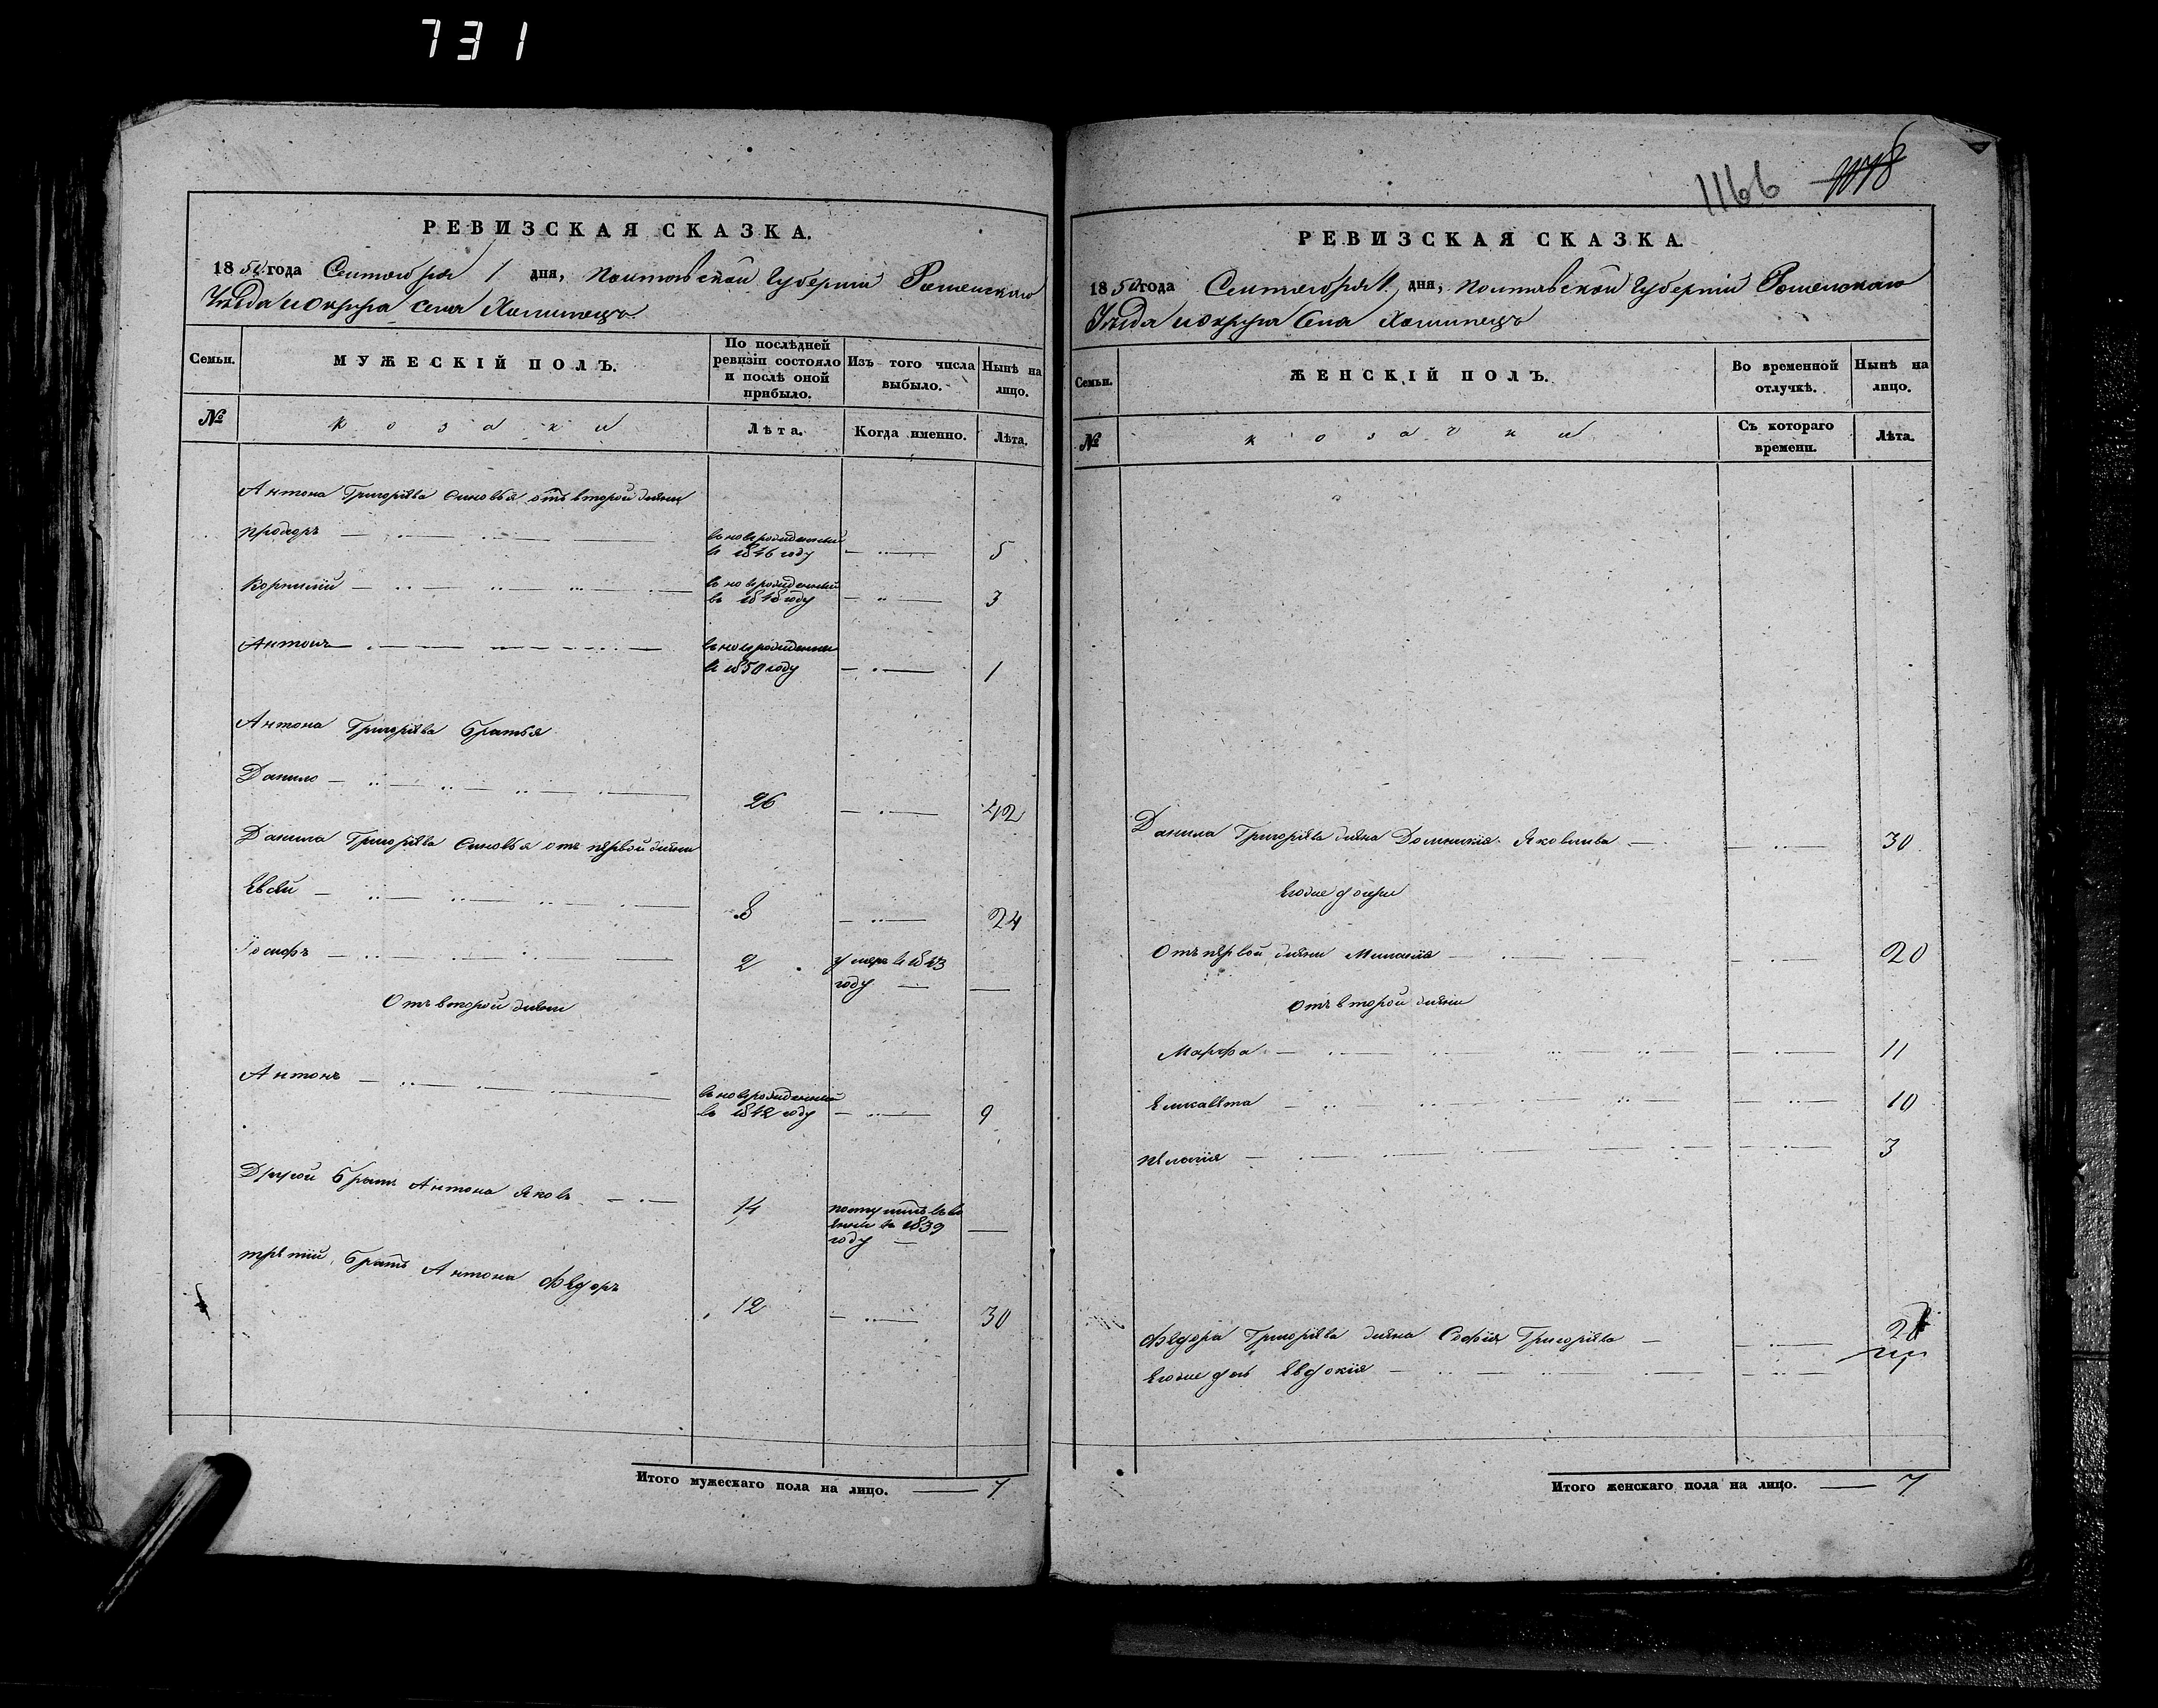 731
РЕВИЗСКАЯ СКАЗКА.
1850 года Сентября 1 дня, Полтавской Губерніи Роменскаго
Уѣзда и Округа села Хоминецъ
Семьи.
МУЖЕСКІЙ ПОЛЪ.
По послѣдней ревизіи состояло и послѣ оной прибыло.
Изъ того числа выбыло.
Нынѣ на лицо.
№
козаки
Лѣта.
Когда именно.
Лѣта.
Антона Григорѣва синовья отъ второй жены
Прохоръ
вновѣ рожденный
въ 1846 году
5
Корнилій
вновѣ рожденный
въ 1848 году
3
Антонъ
вновѣ рожденный
въ 1850 году
1
Антона Григорѣва братья
Данило
26
42
Данила Григорѣва синовья отъ первой жены
Евсѣй
8
24
Іосифъ
2
умеръ въ 1843
году
Отъ второй жены
Антонъ
вновѣ рожденный
въ 1842 году
9
Другой братъ Антона Яковъ
14
1839
году
Третій братъ Антона Федоръ
12
30
Итого мужескаго пола на лицо. 7
1166 1078
РЕВИЗСКАЯ СКАЗКА.
1850 года Сентября 1, дня, Полтавской Губерніи Роменскаго
Уѣзда и Округа Села Хоминецъ
Семьи.
ЖЕНСКІЙ ПОЛЪ.
Во временной отлучкѣ.
Нынѣ на лицо.
№
козачки
Съ котораго времени.
Лѣта.
Данила Григорѣва жена Домникія Яковлева
30
Егоже дочери
Отъ первой жены Миланія
20
Отъ второй жены
Марфа
11
Елисавета
10
Пелагія
3
Федора Григорѣва жена Софія Григорѣва
Егоже дочь Евдокія
Итого женскаго пола на лицо. 7